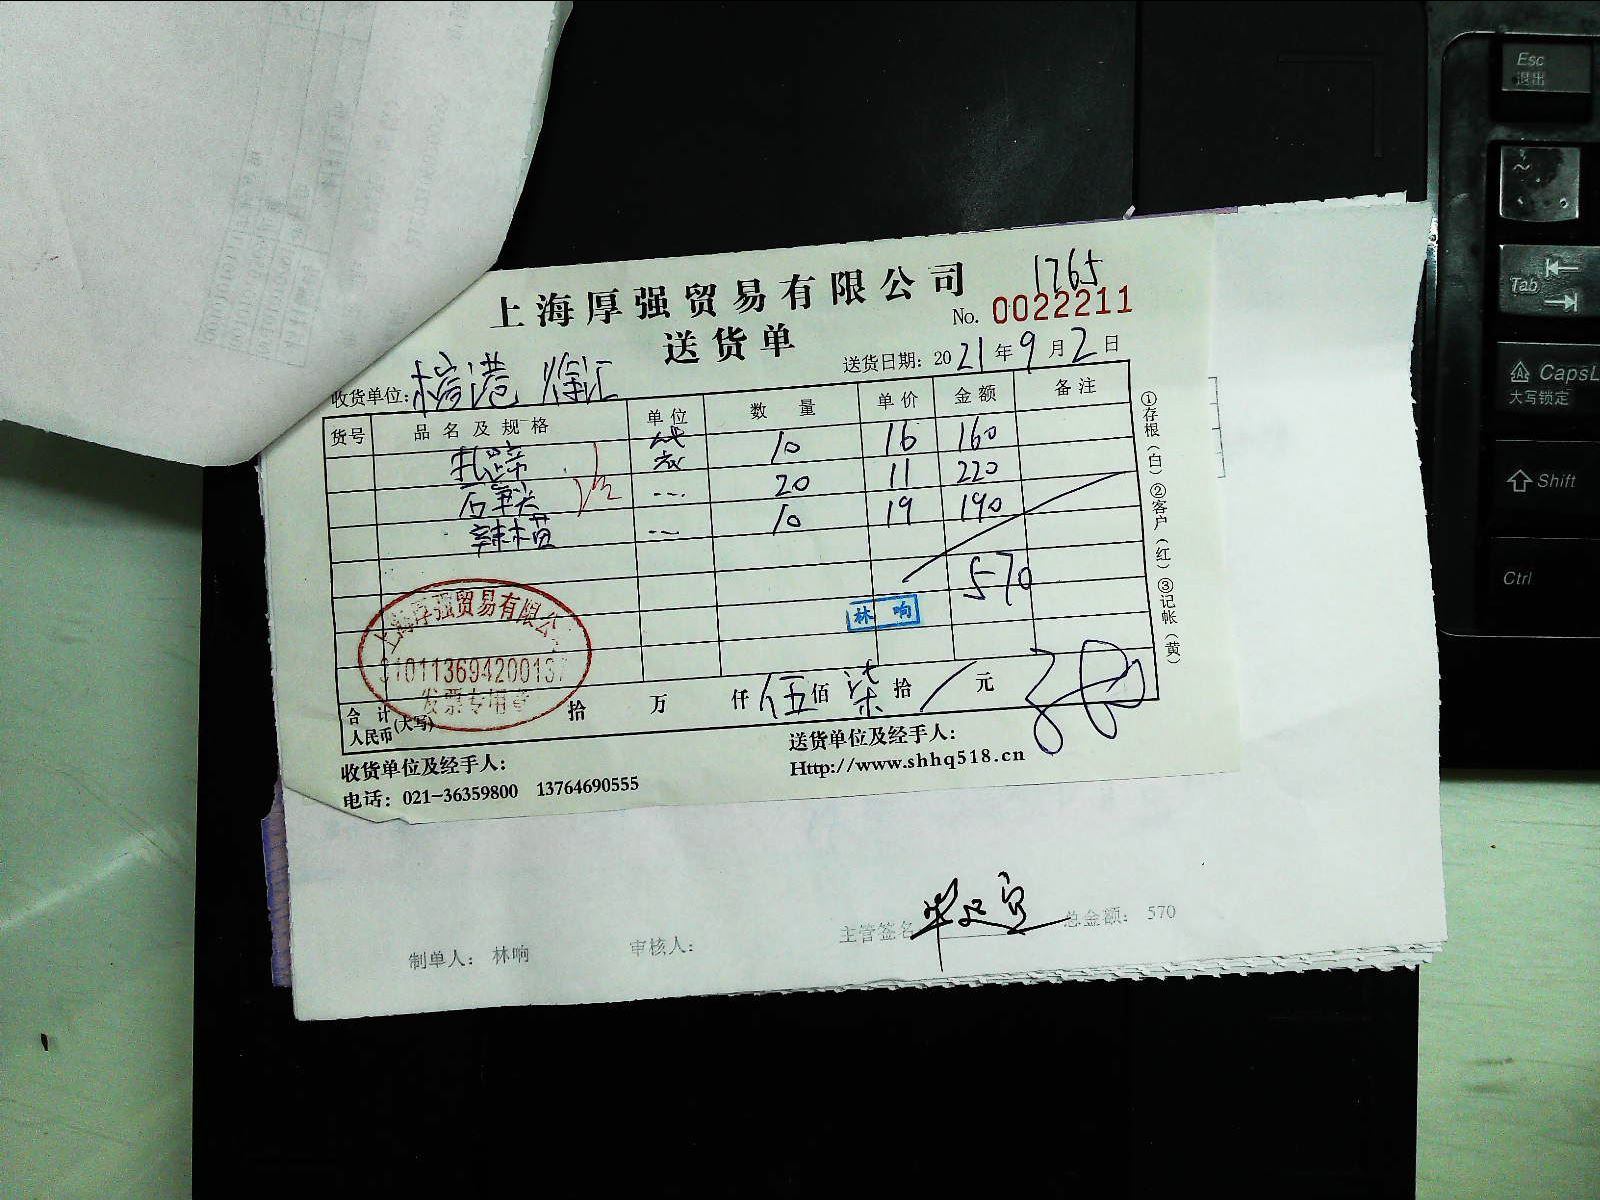 上海厚强贸易有限公司
1765
送货单
No. 0022211
收货单位:
送货日期: 2021年9月2日
货号 品名及规格 单位 数量 单价 金额 备注
袋 10 16 160
20 11 220
10 19 190
570
林响
上海厚强贸易有限公
310113694200137
发票专用章
合计人民币(大写) 拾 万 仟 伍 佰 柒 拾 / 元
①存根(白)②客户(红)③记帐(黄)
收货单位及经手人:
送货单位及经手人:
电话: 021-36359800 13764690555
Http://www.shhq518.cn
制单人: 林响 审核人: 主管签名 总金额: 570
Esc
退出
~
Tab
CapsL
大写锁定
Shift
Ctrl